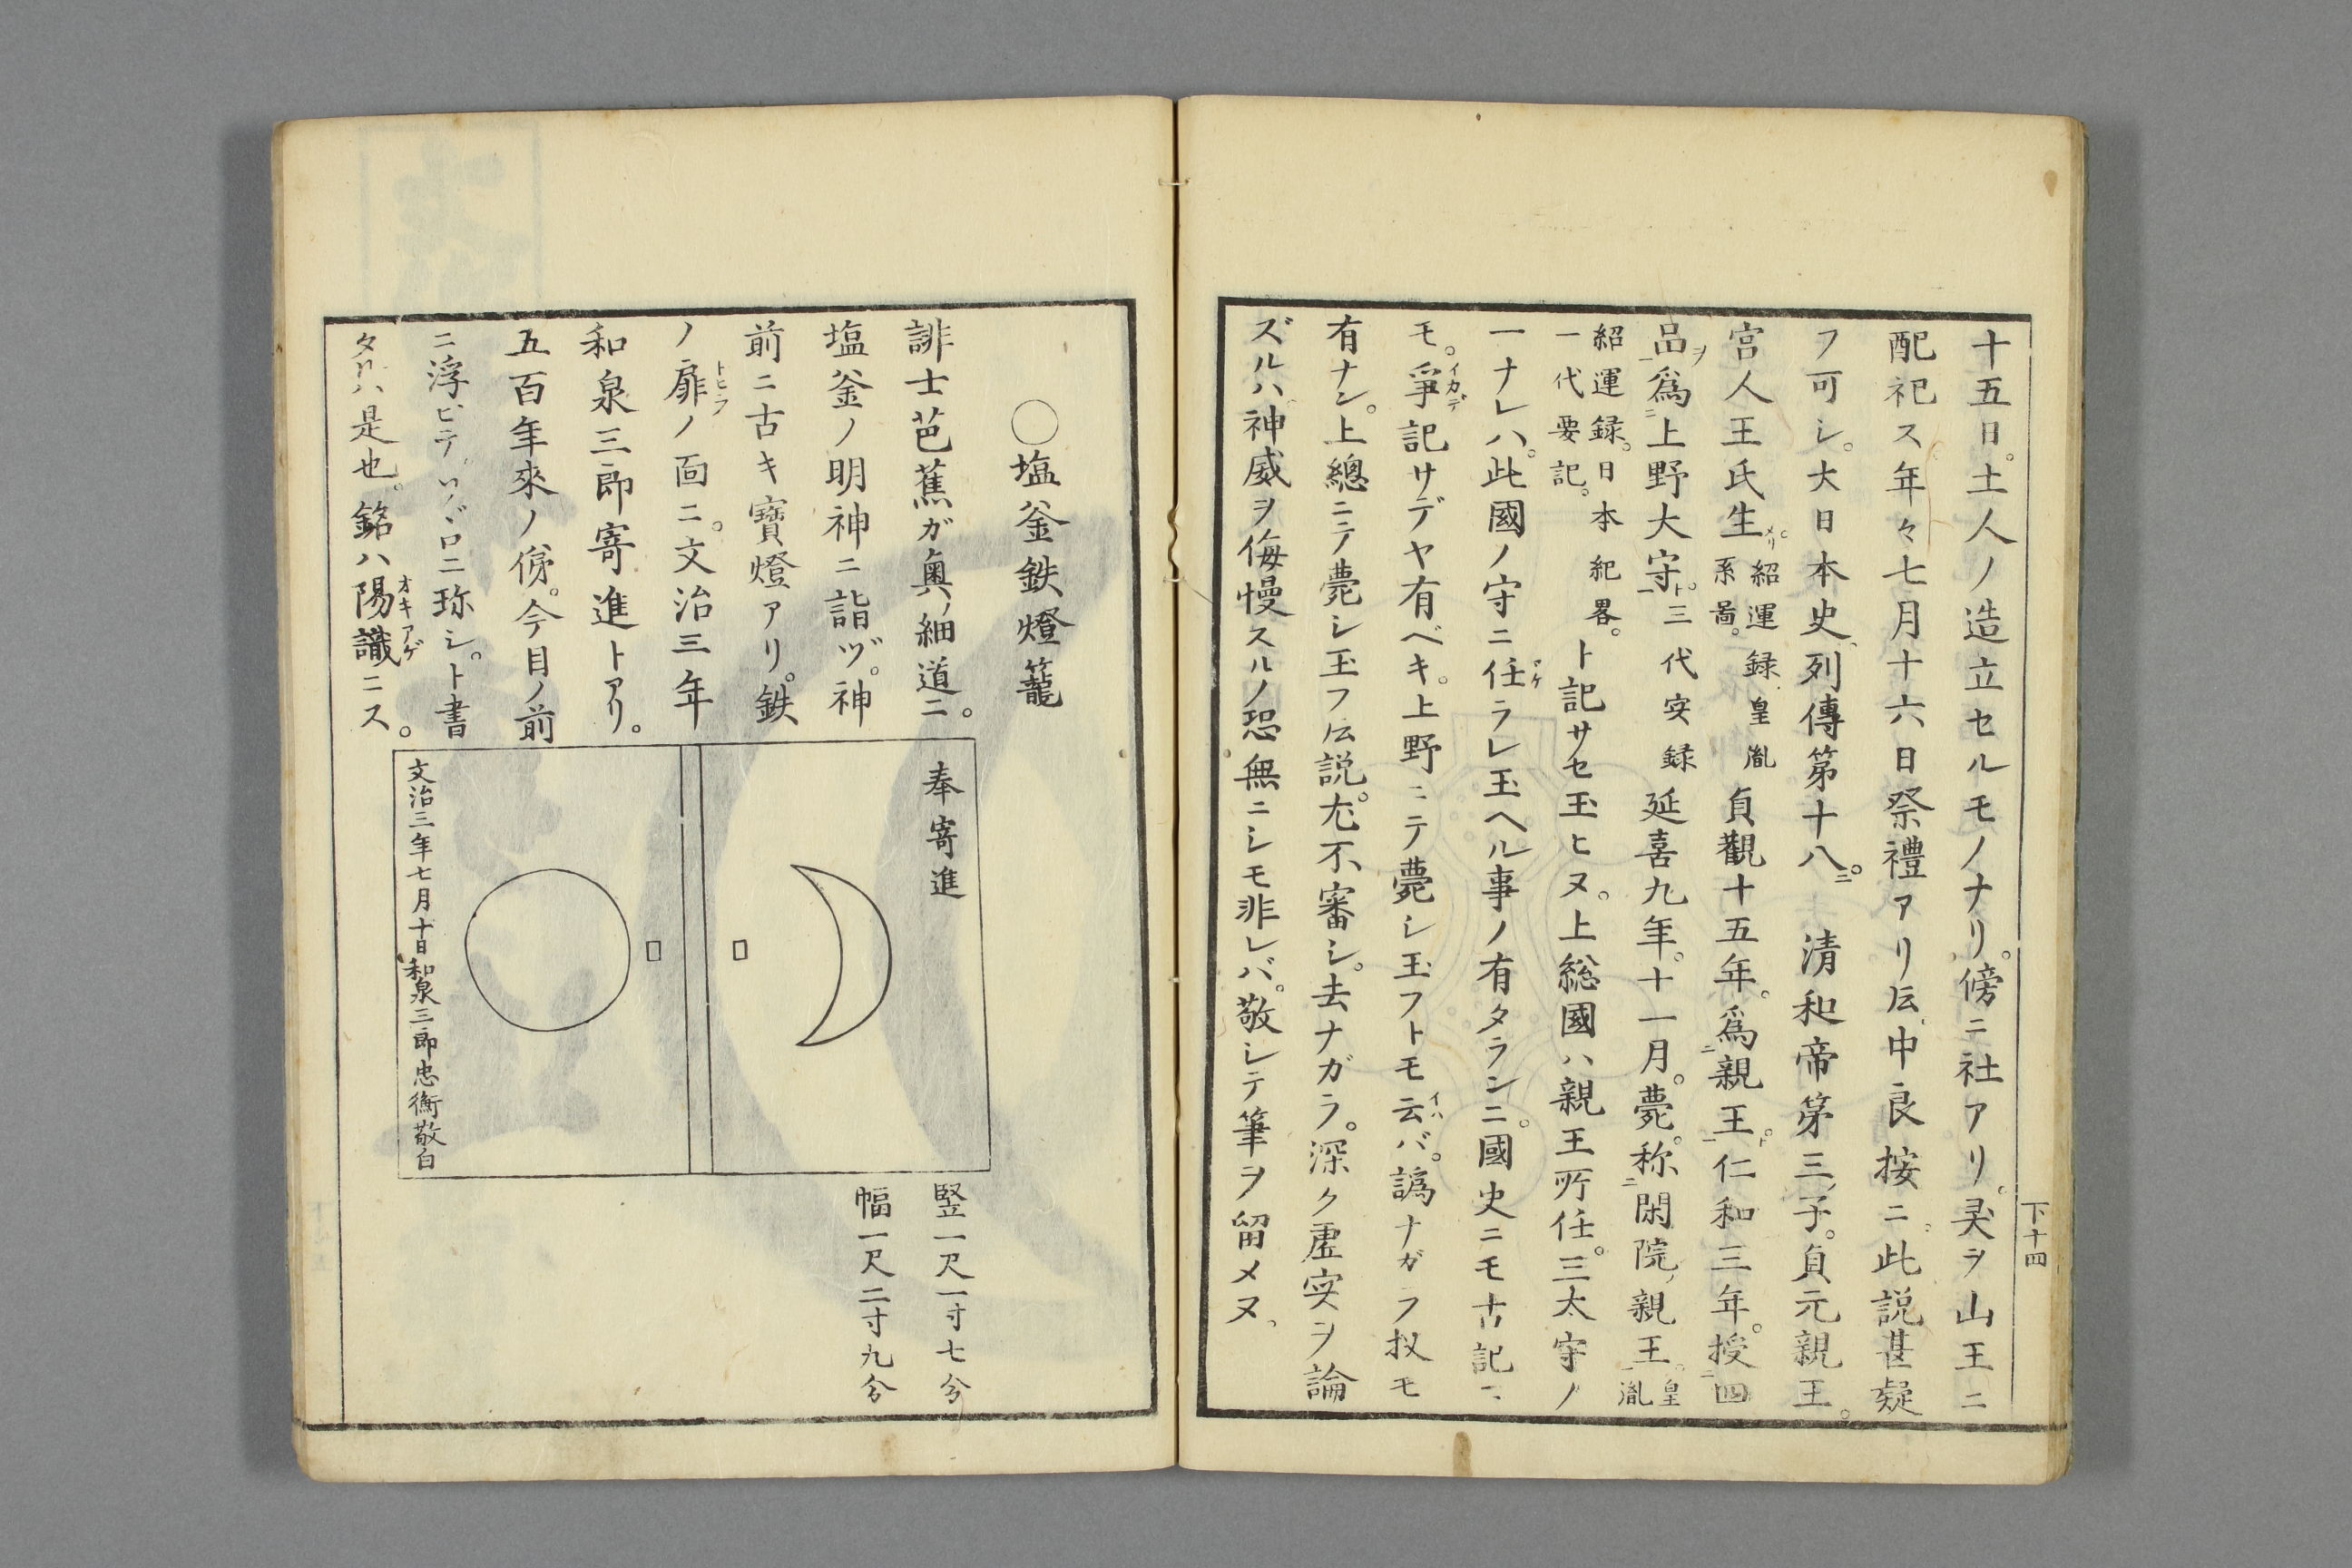 十五日。土人ノ造立セルモノナリ。傍ニ社アリ。灵ヲ山王ニ
配祀ス年々七月十六日祭禮アリ伝。中良按ニ。此説甚疑
フ可シ。大日本史、列傳第十八。ニ 清和帝第三ノ子。貞元親王。
宮人王氏生メリ。紹運録。皇胤系啚。貞觀十五年。爲ニ親王ト。一仁和三年。授ニ四
品ヲ一爲ニ上野大守ト。一三代安録延喜九年。十一月。薨。称ニ閑院ノ親王ト。一皇胤
紹運録。日本紀畧。一代要記。ト記サセ玉ヒヌ。上総國ハ親王所任。三太守ノ
一ナレハ。此國ノ守ニ任マケラレ玉ヘル事ノ有タランニ。國史ニモ古記ニ
モ。爭イカデ記サデヤ有ベキ。上野ニテ薨シ玉フトモ云イハバ。譌ナガフ扠モ
有ナン。上總ニテ薨シ玉フ伝説。尤不審シ。去ナガラ。深ク虚实ヲ論
ズルハ、神威ヲ侮慢スルノ恐無ニシモ非レバ。敬シテ筆ヲ留メヌ、
下十四
〇塩釜鉄燈籠
誹士芭蕉ガ奥ノ細道ニ。
塩釜ノ明神ニ詣ヅ。神
前ニ古キ寳燈アリ。鉄
ノ扉トヒラノ面ニ。文治三年
和泉三郎寄進トアリ。
五百年來ノ俤。今目ノ前
ニ浮ビテソヾロニ珎シ。ト書
タルハ是也。銘ハ陽識オキアゲニス。
奉寄進
文治三年七月十日和泉三郎忠衡敬白
竪一尺一寸七分
幅一尺二寸九分